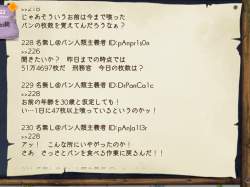 >>216
じゃあそういうお前は今まで喰った
パンの枚数を覚えてんだろうなぁ？
228 名無し@パン人類主義者 ID:pAnpr1s0n
>>226
聞きたいか？　昨日までの時点では
51万4697枚だ　刑務官　今日の枚数は？
229 名無し@パン人類主義者 ID:DiPanCa1c
>>228
お前の年齢を30歳と仮定しても！
い…1日に47枚以上喰っているというのかッ！
230 名無し@パン人類主義者 ID:pAnJa1l3r
>>228
アッ！　こんな所にいやがったのか！
さあ　さっさとパンを食べる作業に戻るんだ！！